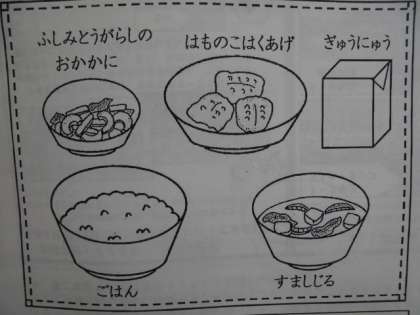 ふしみとうがらしの
おかかに
はものこはくあげ
ぎゅうにゅう
ごはん
すましじる